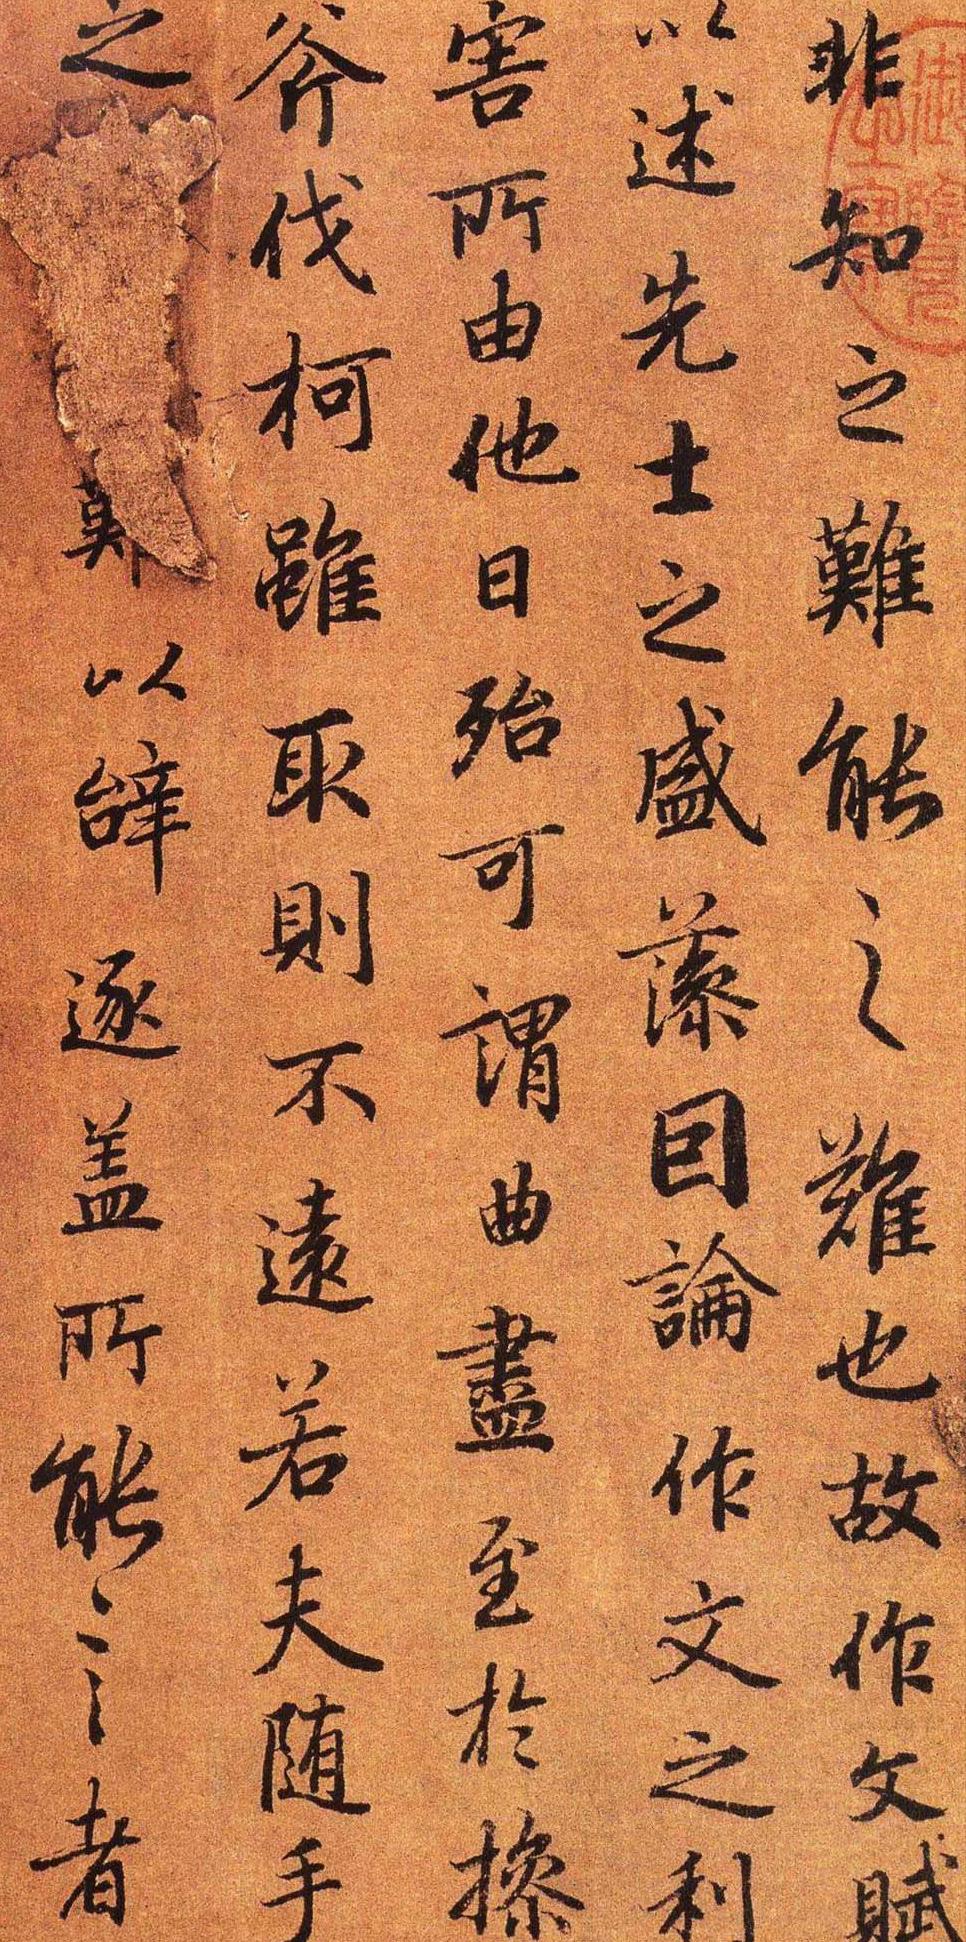 非知之難能之難也故作文賦
以述先士之盛藻因論作文之利
害所由他日殆可謂曲盡至於操
斧伐柯雖取則不遠若夫随手
之難以辝逐盖所能言者